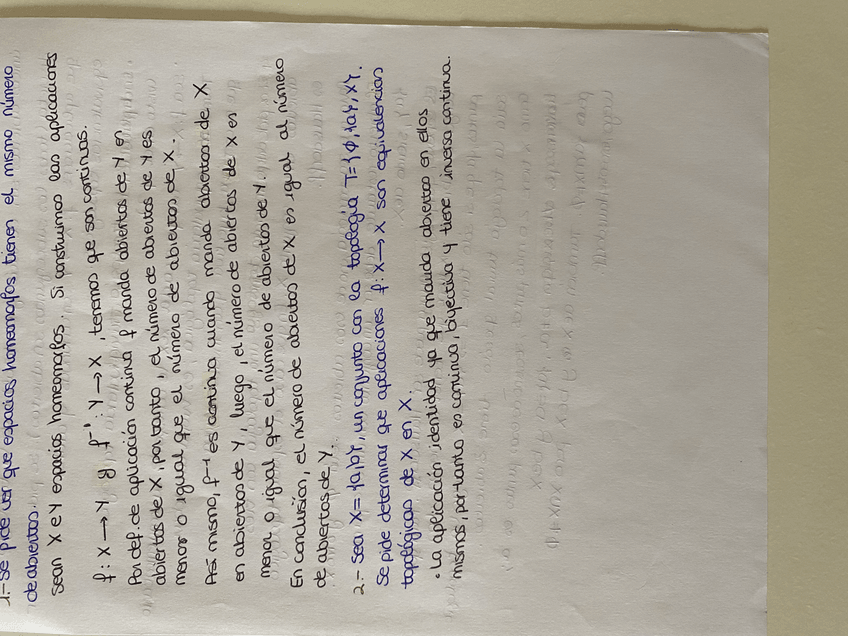 1.- Se pide ver que espacios homeomorfos tienen el mismo número
de abiertos.
Sean X e Y espacios homeomorfos. Si construimos las aplicaciones
f: X → Y y f⁻¹: Y → X, tenemos que son continuas.
Por def. de aplicación continua f manda abiertos de Y en
abiertos de X, por tanto, el número de abiertos de Y es
menor o igual que el número de abiertos de X.
Así mismo, f⁻¹ es continua cuando manda abiertos de X
en abiertos de Y, luego, el número de abiertos de X es
menor o igual que el número de abiertos de Y.
En conclusión, el número de abiertos de X es igual al número
de abiertos de Y.
2.- Sea X = {a,b}, un conjunto con la topología T = {ϕ, {a}, X}.
Se pide determinar que aplicaciones f: X → X son equivalencias
topológicas de X en X.
• La aplicación identidad ya que manda abiertos en ellos
mismos, por tanto es continua, biyectiva y tiene inversa continua.